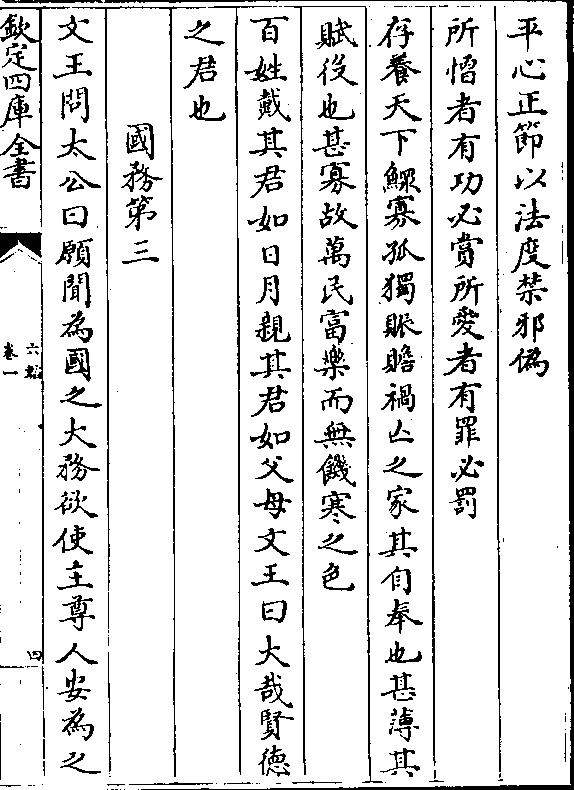 平心正節以法度禁邪偽
所憎者有功必賞所愛者有罪必罰
存養天下鰥寡孤獨賑贍禍亾之家其自奉也甚薄其
賦役也甚寡故萬民富樂而無饑寒之色
百姓戴其君如日月親其君如父母文王曰大哉賢德
之君也
國務第三
文王問太公曰願聞為國之大務欲使主尊人安為之
欽定四庫全書
六韜
卷一
四